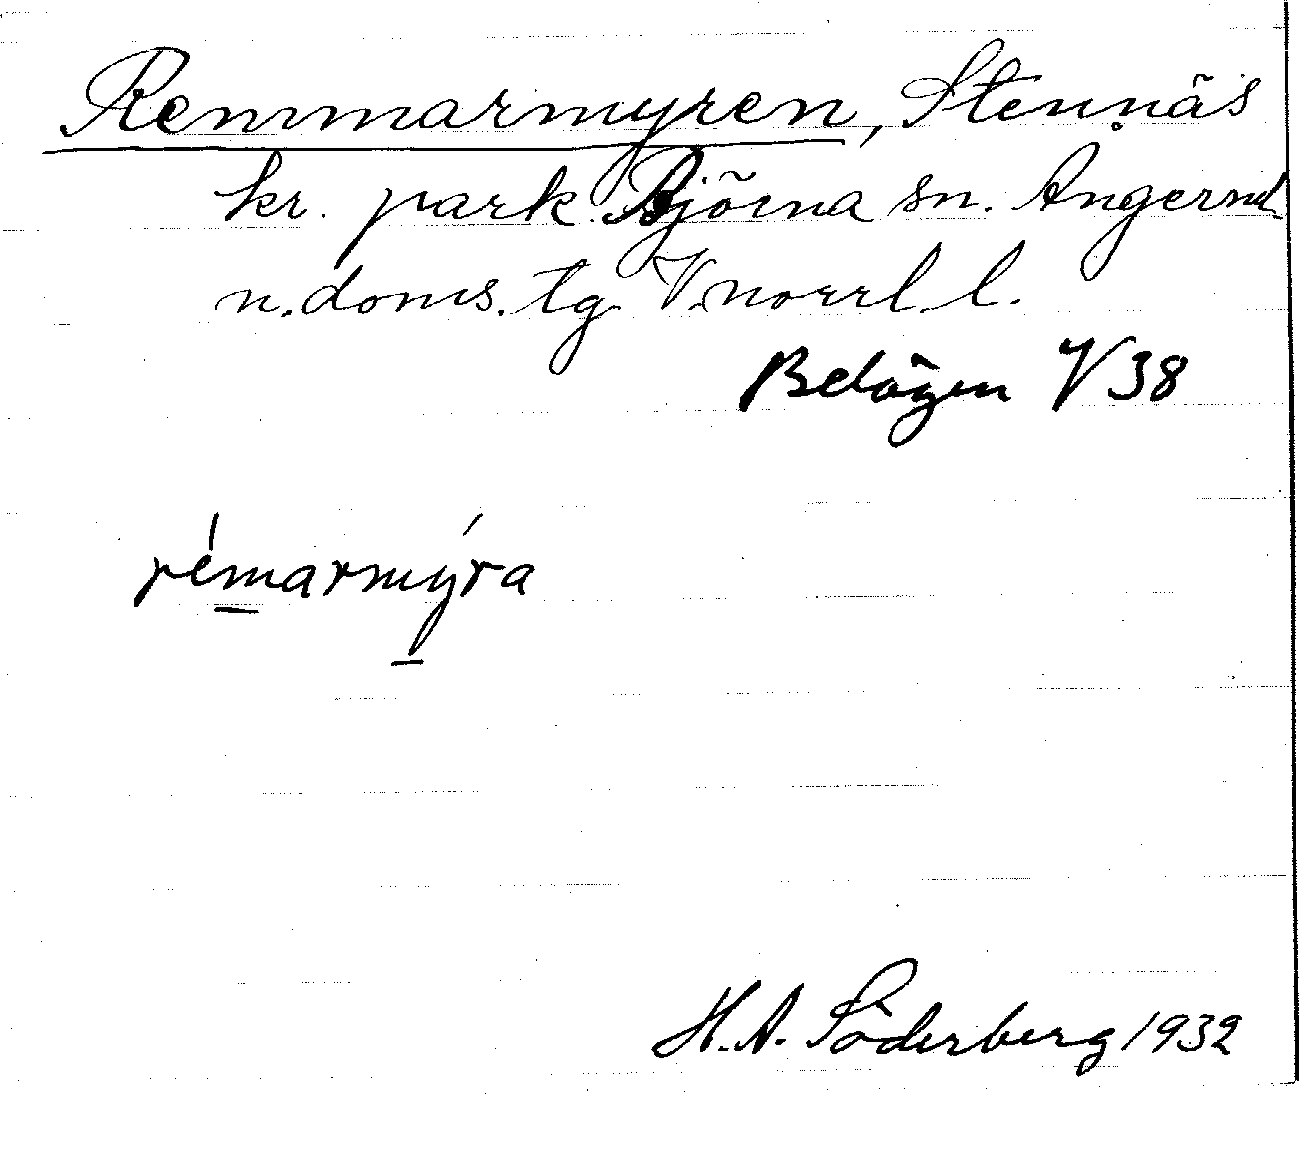 Remmarmyren, Stennäs
kr. park Björna sn. Ångerml.
n. doms. tg V.norrl. l.
Belägen V 38
rémarmýra
H. A. Söderberg 1932